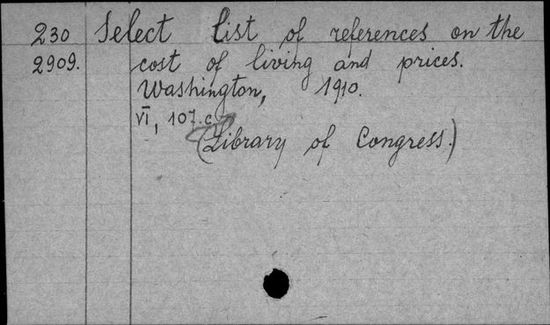 230 Select list of references on the
2909. cost of living and prices.
Washington, 1910.
VI, 107 c.
(Library of Congress.)